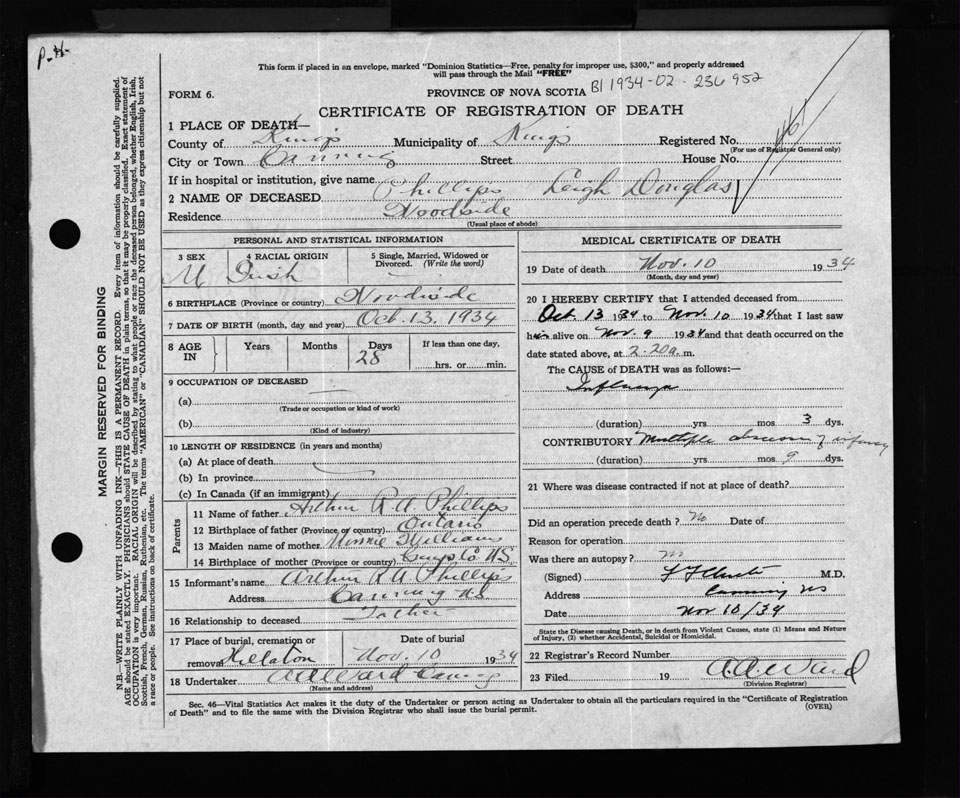 P.H.
This form if placed in an envelope, marked "Dominion Statistics—Free, penalty for improper use, $300," and properly addressed
will pass through the Mail "FREE"
B1 1934-02-236952
FORM 6.
PROVINCE OF NOVA SCOTIA
CERTIFICATE OF REGISTRATION OF DEATH
1 PLACE OF DEATH—
County of Kings Municipality of Kings Registered No.
(For use of Registrar General only)
City or Town Canning Street House No.
If in hospital or institution, give name
2 NAME OF DECEASED Phillips Leigh Douglas
Residence Woodside
(Usual place of abode)
PERSONAL AND STATISTICAL INFORMATION
3 SEX 4 RACIAL ORIGIN 5 Single, Married, Widowed or
Divorced. (Write the word)
M Irish
6 BIRTHPLACE (Province or country) Woodside
7 DATE OF BIRTH (month, day and year) Oct. 13, 1934
8 AGE IN Years Months Days 28 If less than one day,
hrs. or min.
9 OCCUPATION OF DECEASED
(a)
(Trade or occupation or kind of work)
(b)
(Kind of industry)
10 LENGTH OF RESIDENCE (in years and months)
(a) At place of death
(b) In province
(c) In Canada (if an immigrant)
Parents
11 Name of father Arthur R A Phillips
12 Birthplace of father (Province or country) Ontario
13 Maiden name of mother Minnie Williams
14 Birthplace of mother (Province or country) N.S.
15 Informant's name Arthur R A Phillips
Address Canning N.S.
16 Relationship to deceased Father
17 Place of burial, cremation or Date of burial
removal Hillaton Nov. 10 1934
18 Undertaker A A Ward Canning
(Name and address)
MEDICAL CERTIFICATE OF DEATH
19 Date of death Nov. 10 1934
(Month, day and year)
20 I HEREBY CERTIFY that I attended deceased from
Oct. 13 1934 to Nov. 10 1934 that I last saw
him alive on Nov. 9 1934 and that death occurred on
date stated above, at 2.20 a. m.
The CAUSE of DEATH was as follows:—
Influenza
(duration) yrs mos 3 dys.
CONTRIBUTORY Multiple of infancy
(duration) yrs mos 9 dys.
21 Where was disease contracted if not at place of death?
Did an operation precede death? No Date of
Reason for operation
Was there an autopsy? No
(Signed) M.D.
Address Canning NS
Date Nov 10/34
State the Disease causing Death, or in death from Violent Causes, state (1) Means and Nature
of Injury, (2) whether Accidental, Suicidal or Homicidal.
22 Registrar's Record Number
23 Filed 19 A.A. Ward
(Division Registrar)
Sec. 46—Vital Statistics Act makes it the duty of the Undertaker or person acting as Undertaker to obtain all the particulars required in the "Certificate of Registration
of Death" and to file the same with the Division Registrar who shall issue the burial permit.
(OVER)
MARGIN RESERVED FOR BINDING
N.B.—WRITE PLAINLY WITH UNFADING INK—THIS IS A PERMANENT RECORD. Every item of information should be carefully supplied.
AGE should be stated EXACTLY. PHYSICIANS should STATE CAUSE OF DEATH in plain terms, so that it may be properly classified. Exact statement of
OCCUPATION is very important. RACIAL ORIGIN will be described by stating to what people or race the deceased person belonged, whether English, Irish,
Scottish, French, German, Russian, Ruthenian, etc. The terms "AMERICAN" or "CANADIAN" SHOULD NOT BE USED as they express citizenship but not
a race or people. See instructions on back of certificate.